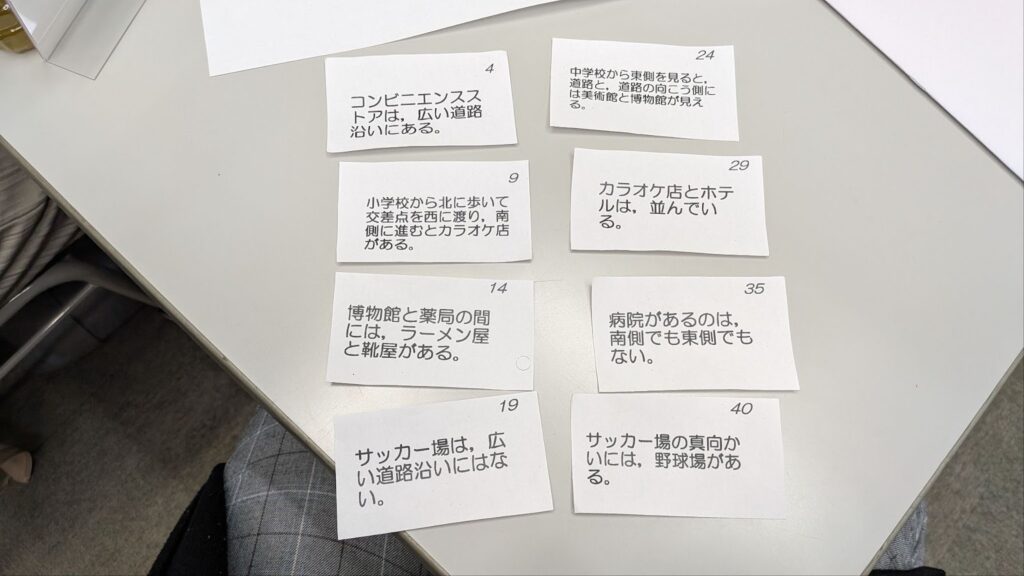 4
コンビニエンスス
トアは，広い道路
沿いにある。
9
小学校から北に歩いて
交差点を西に渡り，南
側に進むとカラオケ店
がある。
14
博物館と薬局の間
には，ラーメン屋
と靴屋がある。
19
サッカー場は，広
い道路沿いにはな
い。
24
中学校から東側を見ると，
道路と，道路の向こう側に
は美術館と博物館が見え
る。
29
カラオケ店とホテ
ルは，並んでい
る。
35
病院があるのは，
南側でも東側でも
ない。
40
サッカー場の真向か
いには，野球場があ
る。